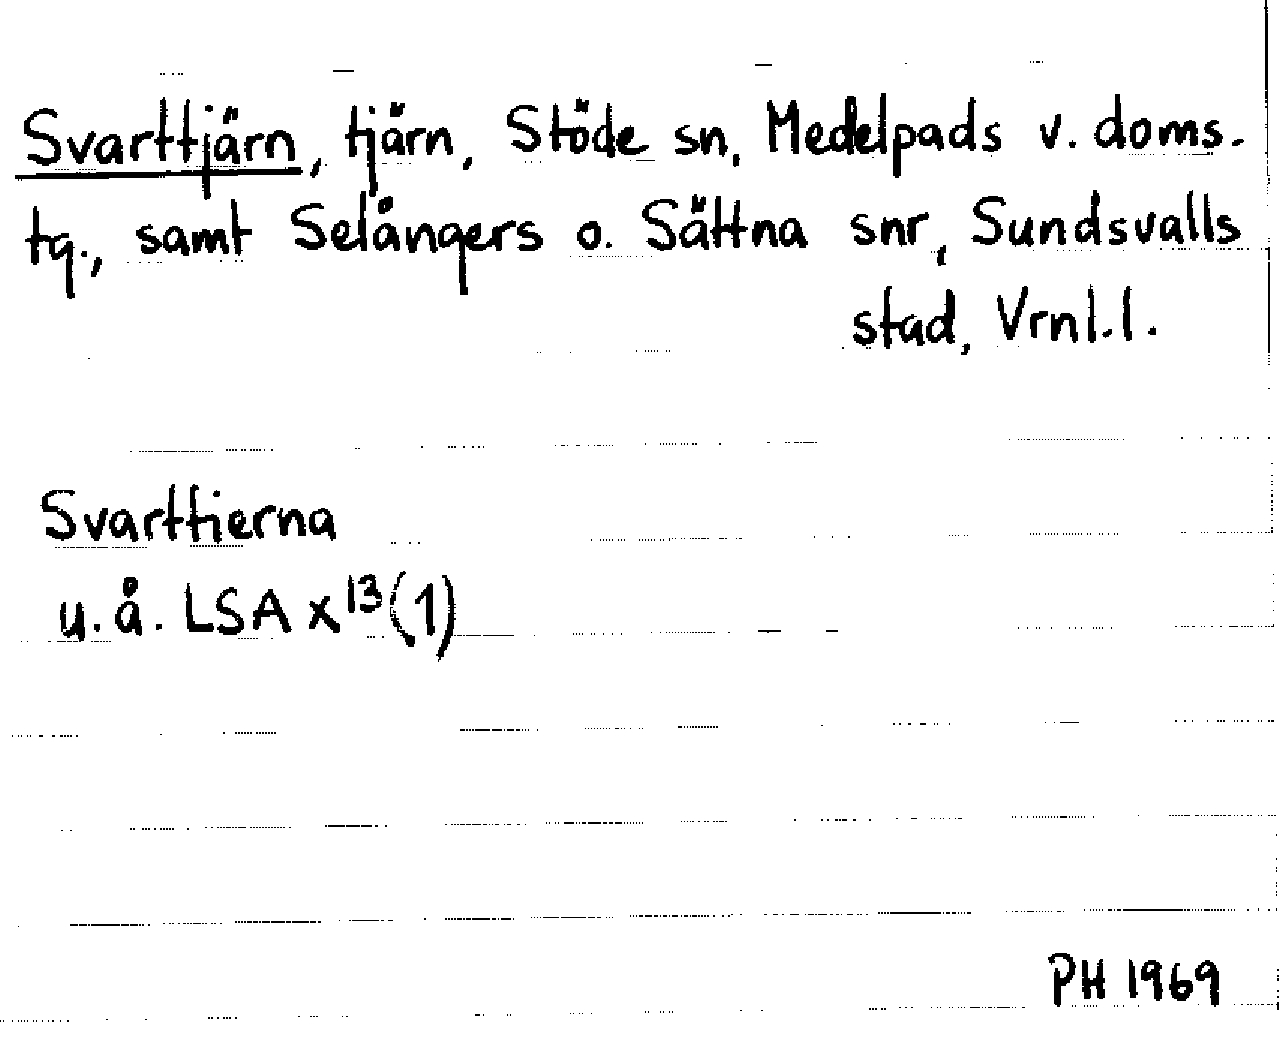 Svarttjärn, tjärn, Stöde sn, Medelpads v. doms.
tg., samt Selångers o. Sättna snr, Sundsvalls
stad, Vrnl.l.
Svarttierna
u.å. LSA X¹³(1)
PH 1969